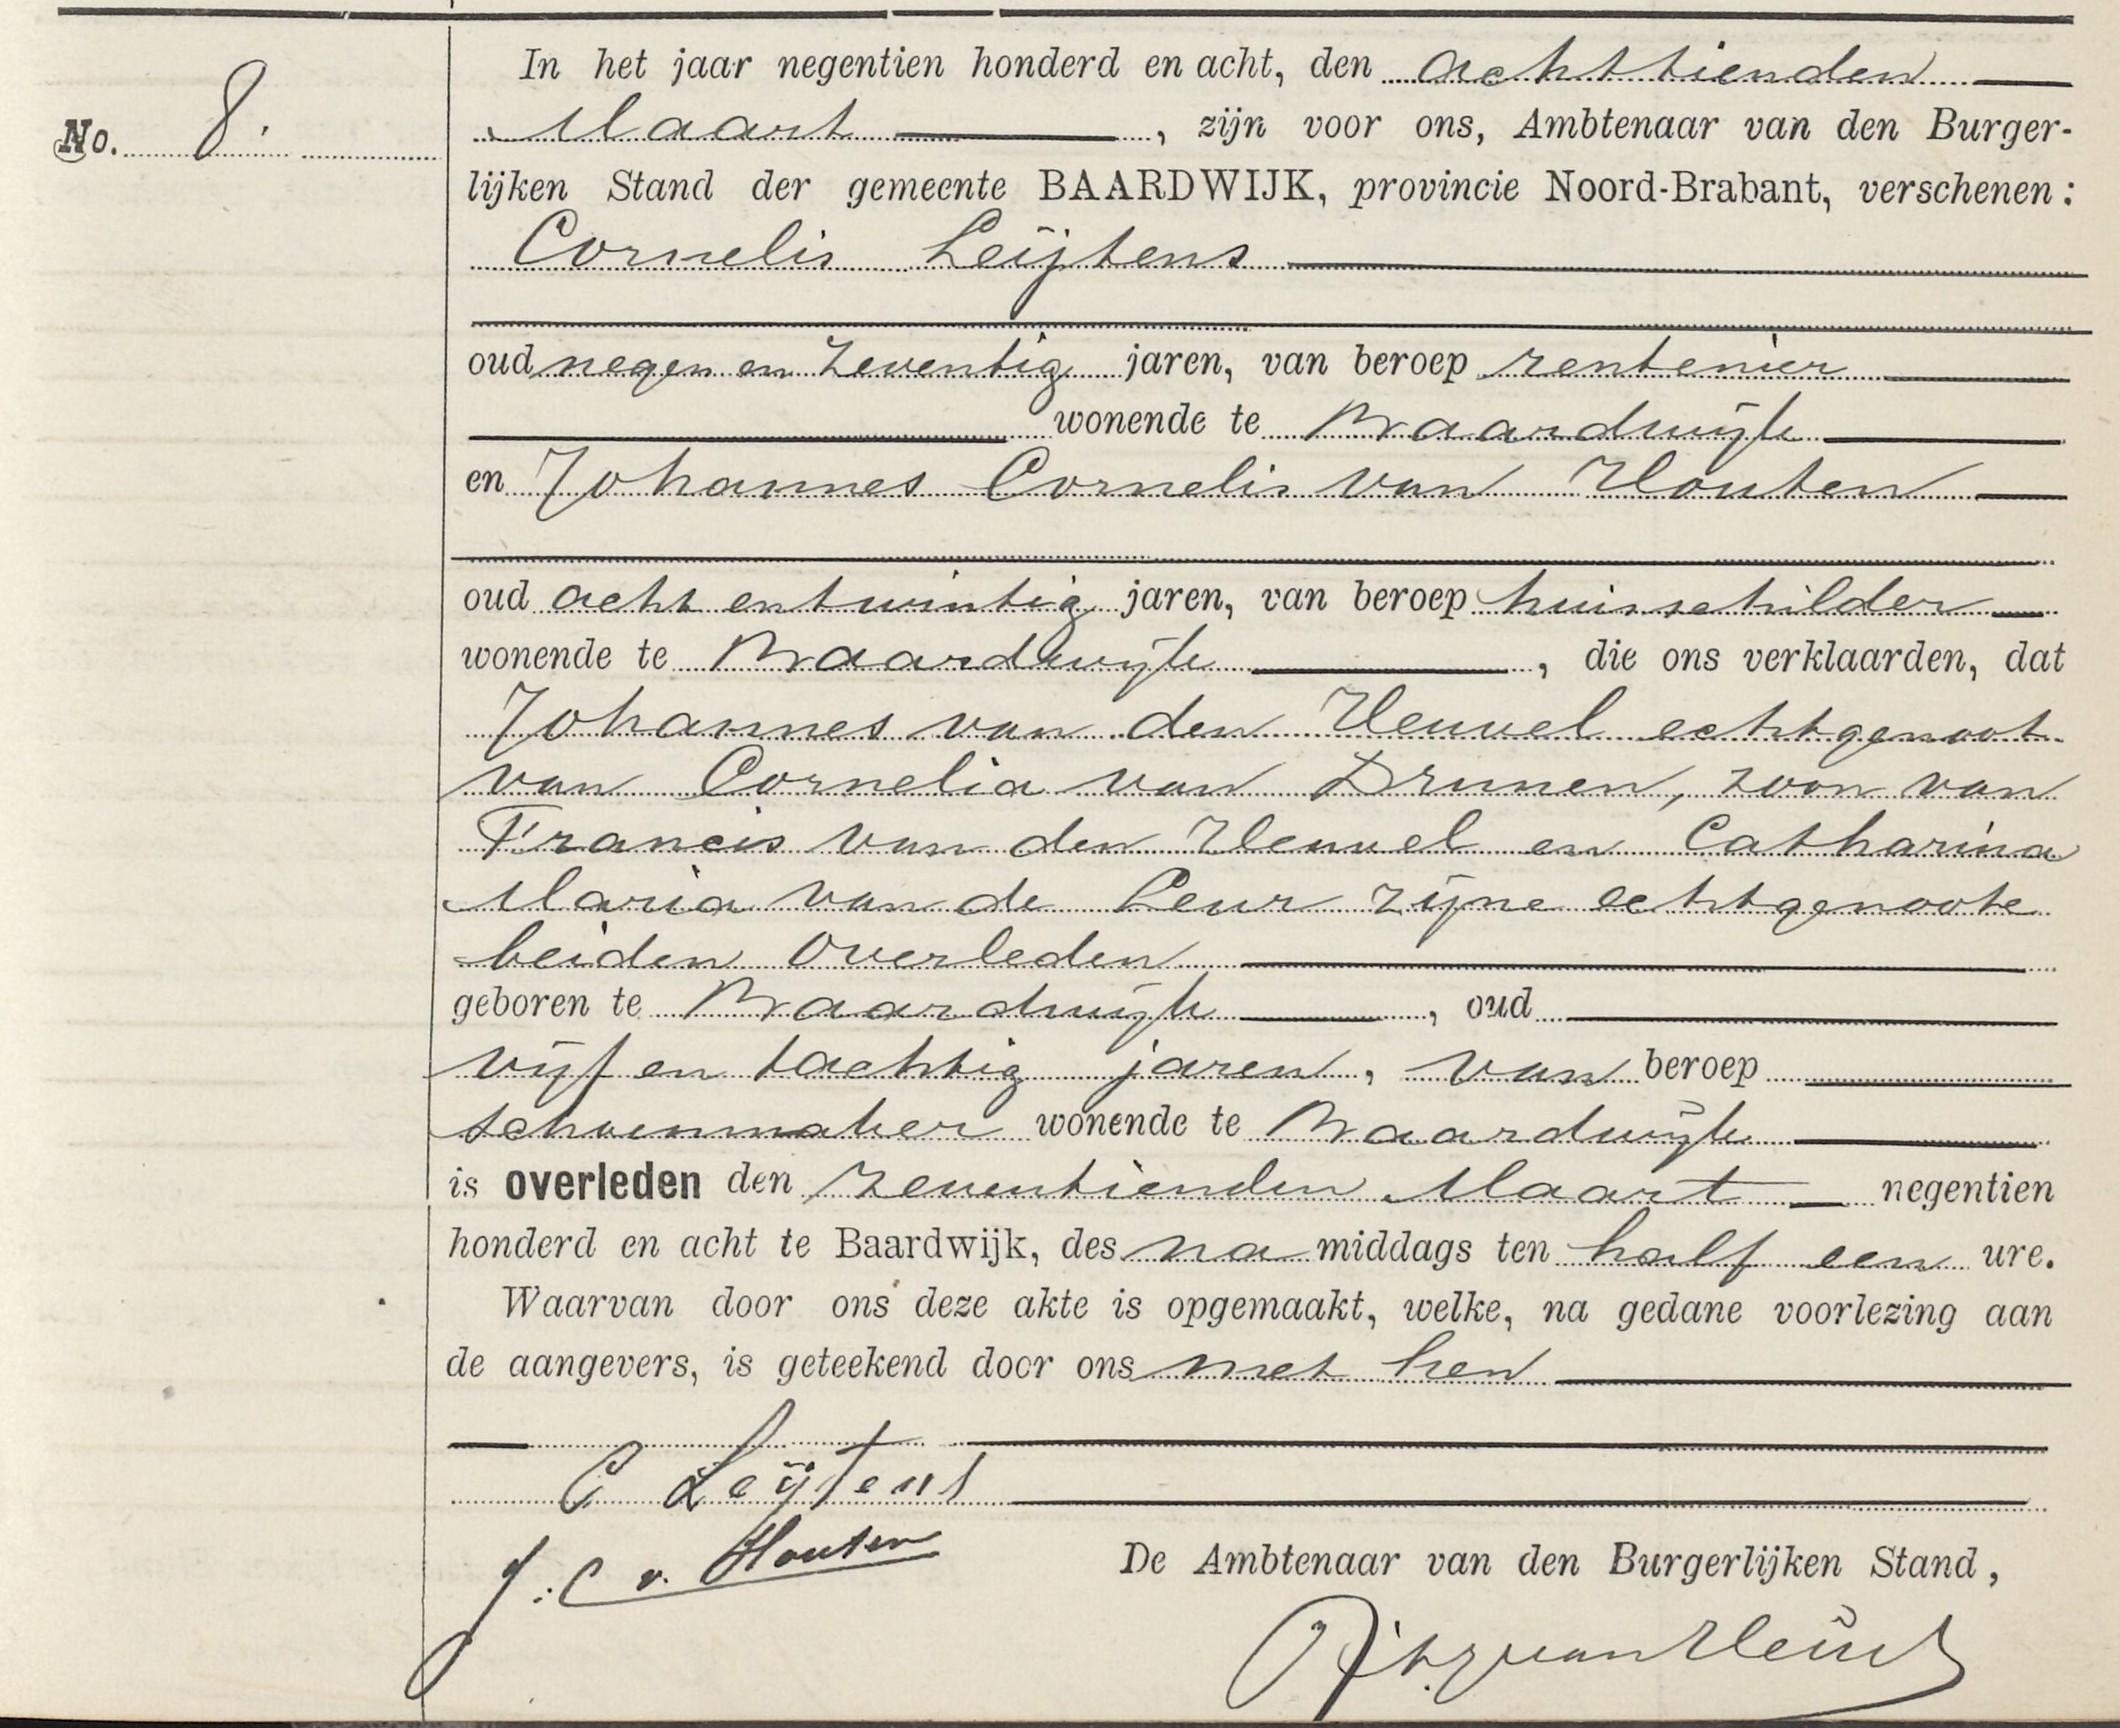 No. 8.
In het jaar negentien honderd en acht, den achttienden
Maart, zijn voor ons, Ambtenaar van den Burger-
lijken Stand der gemeente BAARDWIJK, provincie Noord-Brabant, verschenen:
Cornelis Leijtens
oud negen en zeventig jaren, van beroep rentenier
wonende te Baardwijk
en Johannes Cornelis van Houten
oud acht en twintig jaren, van beroep huisschilder
wonende te Baardwijk, die ons verklaarden, dat
Johannes van den Heuvel echtgenoot
van Cornelia van Drunen, zoon van
Francis van den Heuvel en Catharina
Maria van de Leur zijne echtgenoote
beiden overleden
geboren te Baardwijk, oud
vijf en tachtig jaren, van beroep
schoenmaker wonende te Baardwijk
is overleden den zeventienden Maart negentien
honderd en acht te Baardwijk, des na middags ten half een ure.
Waarvan door ons deze akte is opgemaakt, welke, na gedane voorlezing aan
de aangevers, is geteekend door ons met hen
C Leijtens
J. C v. Houten
De Ambtenaar van den Burgerlijken Stand,